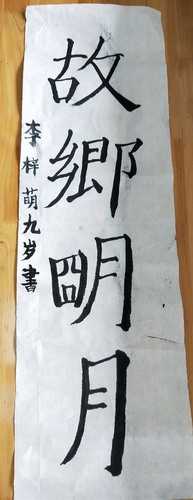 故鄉明月
李梓萌九岁書